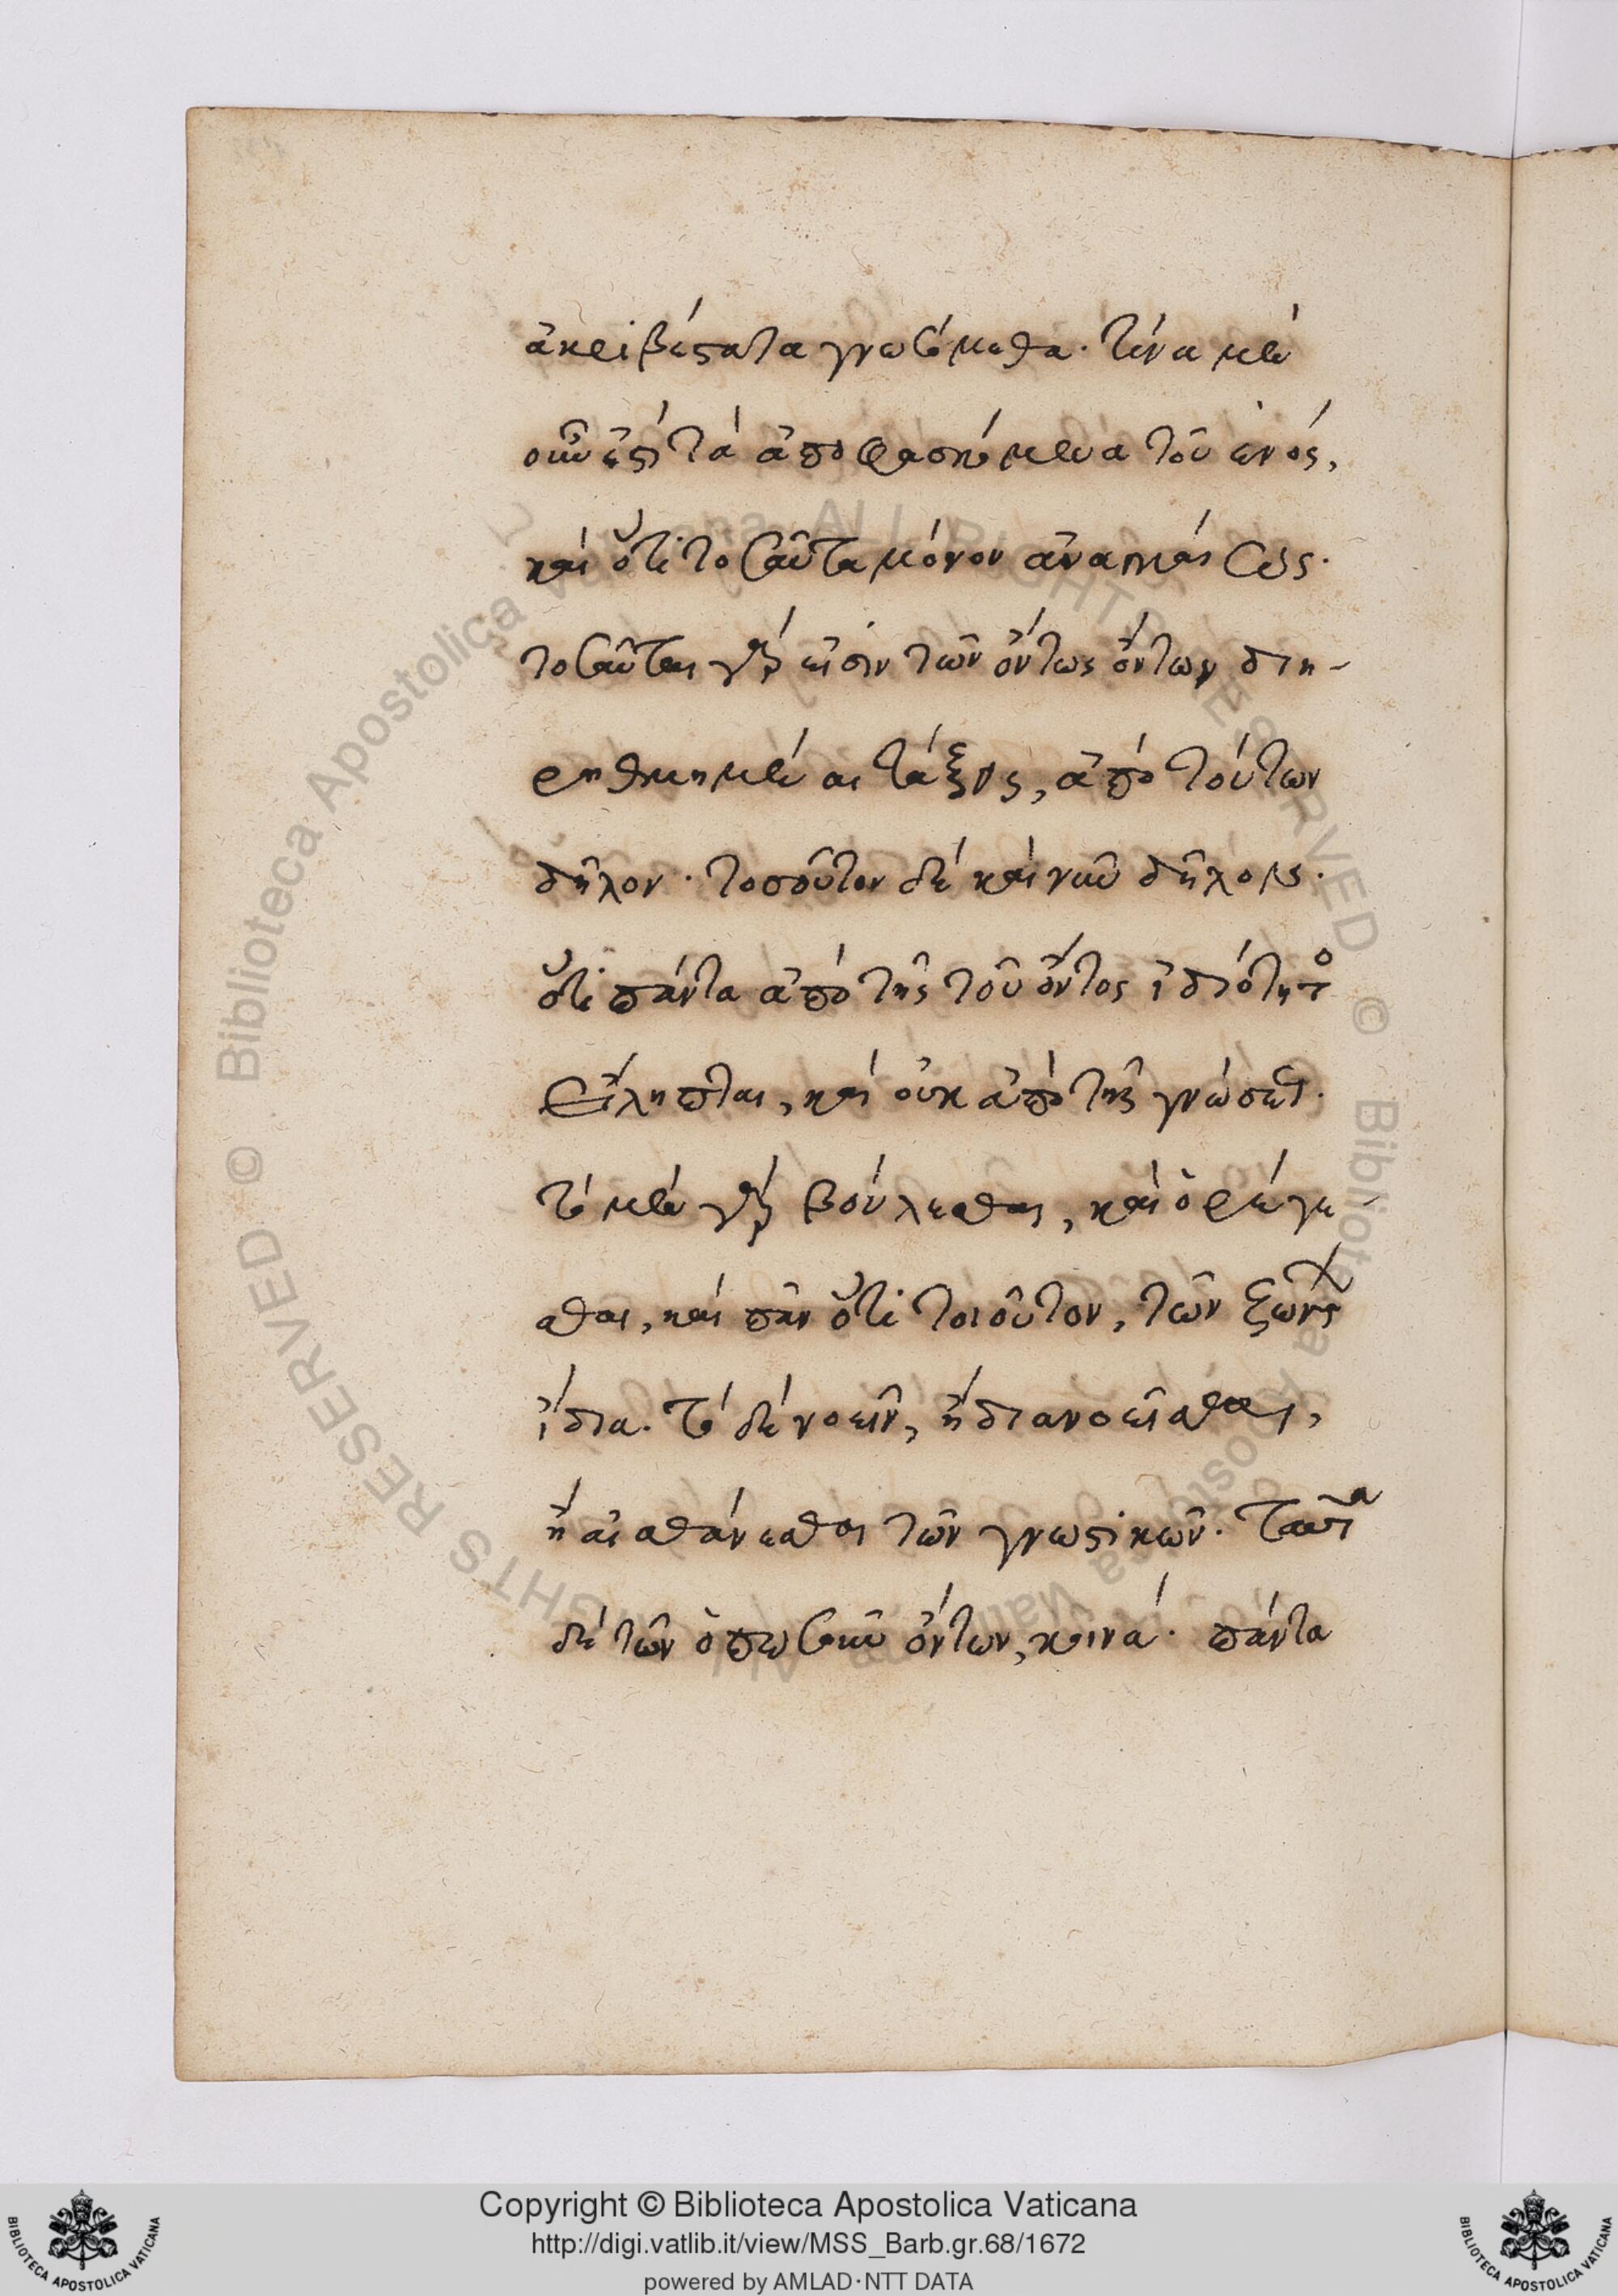 ἀκριβέστατα γνωσόμεθα. τίνα μὲν
οὖν ἐστὶ τὰ ἀποφασκόμενα τοῦ ἑνὸς,
καὶ ὅτι τοσαῦτα μόνον ἀναγκαίως.
τοσαῦται γάρ εἰσιν τῶν ὄντως ὄντων διη-
ρηθμημέναι τάξεις, ἀπὸ τούτων
δῆλον. τοσοῦτον δὲ καὶ νῦν δῆλον.
ὅτι πάντα ἀπὸ τῆς τοῦ ὄντος ἰδιότητος
εἴληπται, καὶ οὐκ ἀπὸ τῆς γνώσεως.
τὸ μὲν γὰρ βούλεσθαι, καὶ ὀρέγε-
σθαι, καὶ πᾶν ὅτι τοιοῦτον, τῶν ζώντων
ἴδια. τὸ δὲ νοεῖν, ἢ διανοεῖσθαι,
ἢ αἰσθάνεσθαι τῶν γνωστικῶν. ταῦτα
δὲ τῶν ὁπωσοῦν ὄντων, κοινά. πάντα
Copyright © Biblioteca Apostolica Vaticana
http://digi.vatlib.it/view/MSS_Barb.gr.68/1672
powered by AMLAD·NTT DATA
BIBLIOTECA APOSTOLICA VATICANA
BIBLIOTECA APOSTOLICA VATICANA